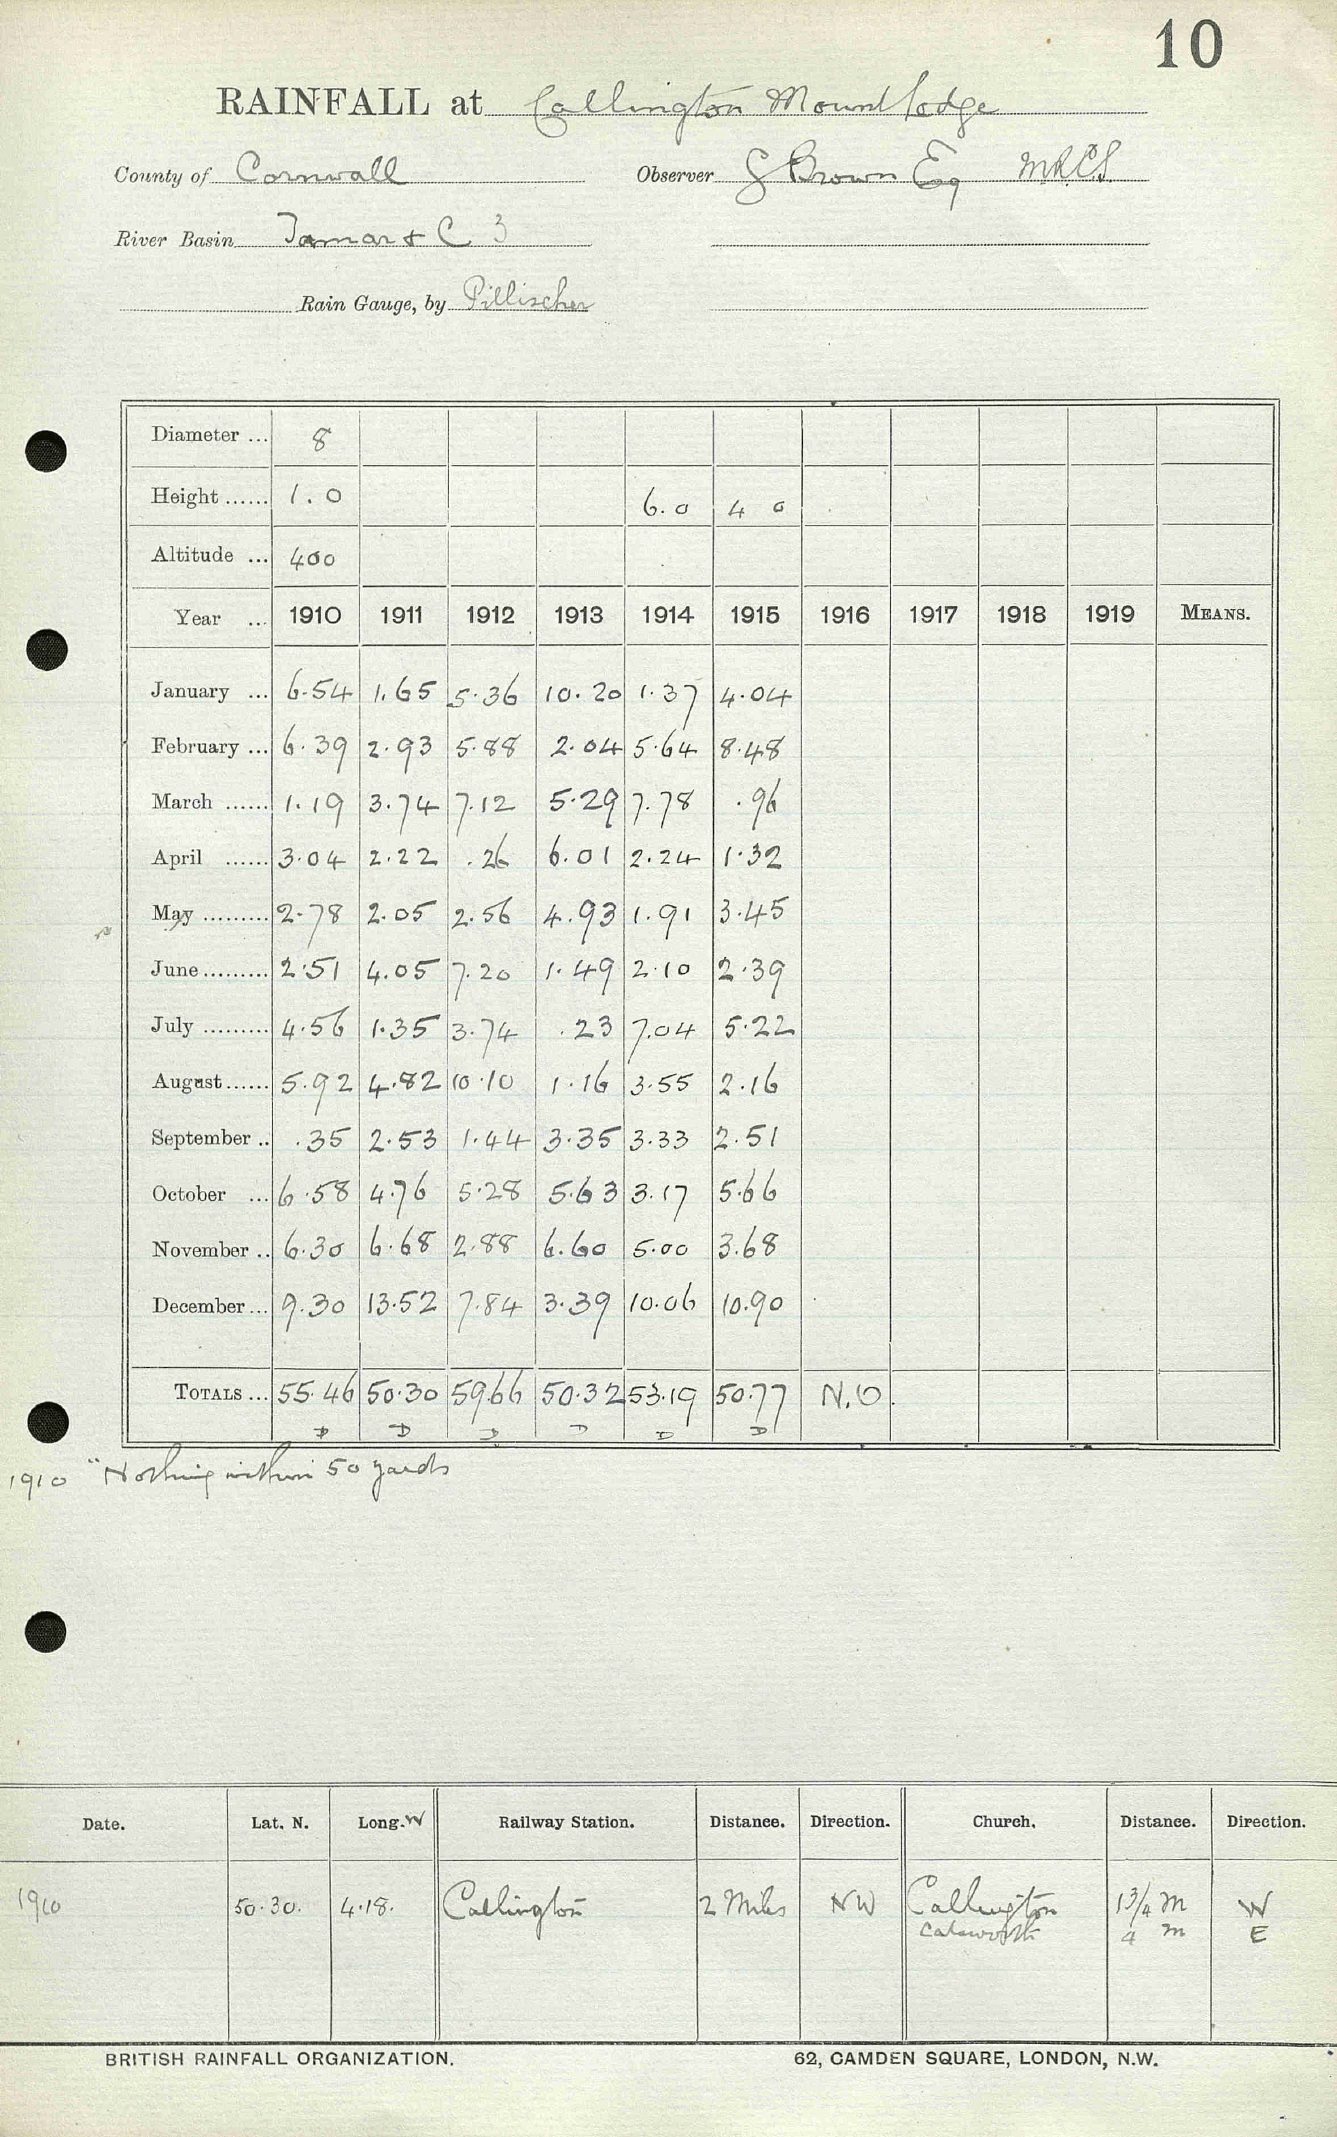 10
RAINFALL at Callington Mount Lodge
County of Cornwall Observer G Brown Esq MRCS
River Basin Tamar & C 3
Rain Gauge, by Pillischer
Diameter ... 8
Height ...... 1.0 6.0 4 0
Altitude ... 400
Year ... 1910 1911 1912 1913 1914 1915 1916 1917 1918 1919 MEANS.
January ... 6.54 1.65 5.36 10.20 1.37 4.04
February ... 6.39 2.93 5.88 2.04 5.64 8.48
March ...... 1.19 3.74 7.12 5.29 7.78 .96
April ...... 3.04 2.22 .26 6.01 2.24 1.32
May ......... 2.78 2.05 2.56 4.93 1.91 3.45
June ......... 2.51 4.05 7.20 1.49 2.10 2.39
July ......... 4.56 1.35 3.74 .23 7.04 5.22
August ...... 5.92 4.82 10.10 1.16 3.55 2.16
September .. .35 2.53 1.44 3.35 3.33 2.51
October ... 6.58 4.76 5.28 5.63 3.17 5.66
November .. 6.30 6.68 2.88 6.60 5.00 3.68
December ... 9.30 13.52 7.84 3.39 10.06 10.90
TOTALS ... 55.46 50.30 59.66 50.32 53.19 50.77 N.O.
D D D D D D
1910 "Nothing within 50 yards
Date. Lat. N. Long. W Railway Station. Distance. Direction. Church. Distance. Direction.
1910 50.30. 4.18. Callington 2 Miles NW Callington 1 3/4 M W
4 m E
BRITISH RAINFALL ORGANIZATION. 62, CAMDEN SQUARE, LONDON, N.W.